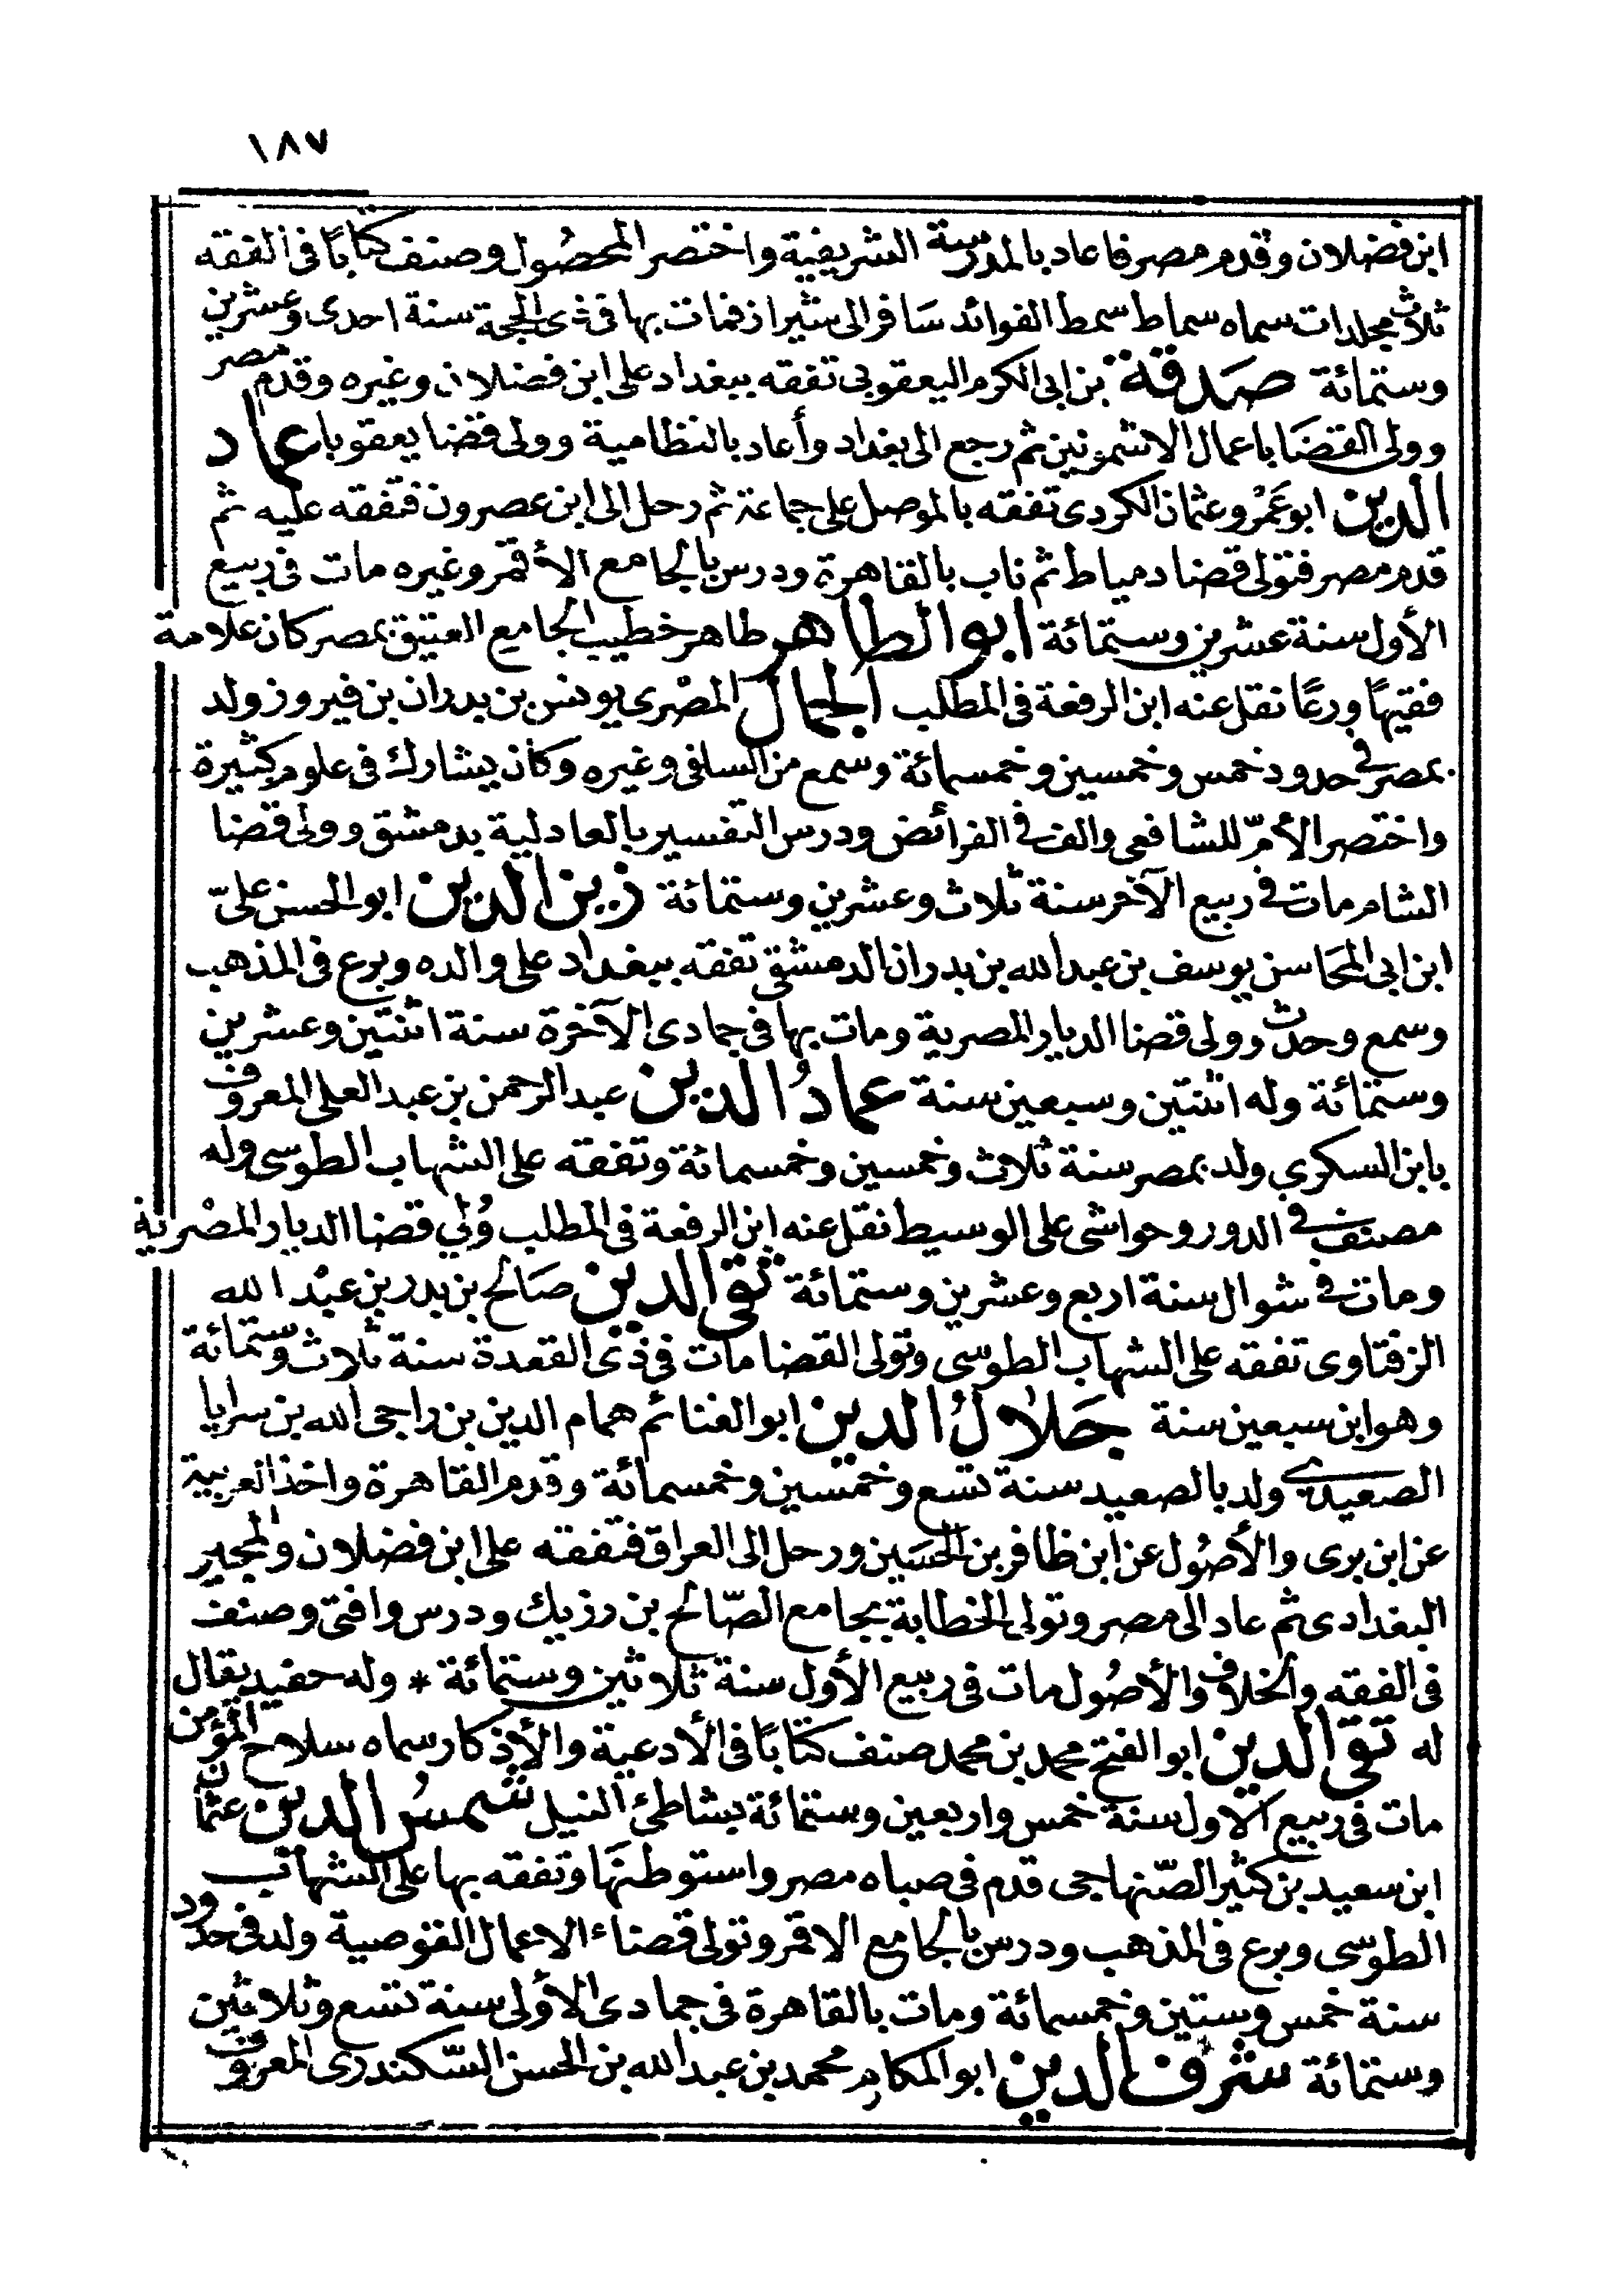 ١٨٧
ابن فضلان وقدم مصر فاعاد بالمدرسة الشريفية واختصر المحصُول وصنف كتابًا فى الفقه
ثلاث مجلدات سماه سماط سمط الفوائد سَافر الى شيراز فمات بها فى ذى الحجة سنة احدى وعشرين
وستمائة صَدقة بن ابى الكرم اليعقوبى تفقه ببغداد على ابن فضلان وغيره وقدم مصر
وولى القضَا باعمال الاشمونين ثم رجع الى بغداد وأعاد بالنظامية وولى قضا يعقوبا عماد
الدين ابو عَمْرو عثمان الكردى تفقه بالموصل على جماعة ثم رحل الى ابن عصرون فتفقه عليه ثم
قدم مصر فتولى قضا دمياط ثم ناب بالقاهرة ودرس بالجامع الأقمر وغيره مات فى ربيع
الأول سنة عشرين وستمائة ابو الطاهر طاهر خطيب الجامع العتيق بمصر كان علامة
فقيهًا ورعًا نقل عنه ابن الرفعة فى المطلب الجمال المصْرى يونس بن بدران بن فيروز ولد
بمصر فى حدود خمس وخمسين وخمسمائة وسمع من السلفى وغيره وكان يشارك فى علوم كثيرة
واختصر الأمّ للشافعى والف فى الفرائض ودرس التفسير بالعادلية بدمشق وولى قضا
الشام مات فى ربيع الآخر سنة ثلاث وعشرين وستمائة زين الدين ابو الحسن علىّ
ابن ابى المحَاسن يوسف بن عبد الله بن بدران الدمشقى تفقه ببغداد على والده وبرع فى المذهب
وسمع وحدث وولى قضا الديار المصرية ومات بها فى جمادى الآخرة سنة اثنتين وعشرين
وستمائة وله اثنتين وسبعين سنة عمادُ الدين عبد الرحمن بن عبد العلى المعروف
بابن السكرى ولد بمصر سنة ثلاث وخمسين وخمسمائة وتفقه على الشهاب الطوسى وله
مصنف فى الدور وحواشى على الوسيط نقل عنه ابن الرفعة فى المطلب وُلي قضا الديار المصْرية
ومات فى شوال سنة اربع وعشرين وستمائة تقى الدين صَالح بن بدر بن عبْد الله
الزفتاوى تفقه على الشهاب الطوسى وتولى القضا مات فى ذى القعدة سنة ثلاث وستمائة
وهو ابن سبعين سنة جَلالُ الدين ابو الغنائم همام الدين بن راجى الله بن سرايا
الصعيدى ولد بالصعيد سنة تسع وخمسين وخمسمائة وقدم القاهرة واخذ العربية
عن ابن برى والأصُول عن ابن ظافر بن الحسَين ورحل الى العراق فتفقه على ابن فضلان والمجير
البغدادى ثم عاد الى مصر وتولى الخطابة بجامع الصّالح بن رزيك ودرس وافتى وصنف
فى الفقه والخلاف والأصُول مات فى ربيع الأول سنة ثلاثين وستمائة * وله حفيد يقال
له تقى الدين ابو الفتح محمد بن محمد صنف كتابًا فى الأدعية والأذكار سماه سلاح المؤمن
مات فى ربيع الاول سنة خمس واربعين وستمائة بشاطئ النيل شمسُ الدين عثمان
ابن سعيد بن كثير الصّنهاجى قدم فى صباه مصر واستوطنهَا وتفقه بها على الشهاب
الطوسى وبرع فى المذهب ودرس بالجامع الاقمر وتولى قضاء الاعمال القوصية ولد فى حدود
سنة خمس وستين وخمسمائة ومات بالقاهرة فى جمادى الأولى سنة تسع وثلاثين
وستمائة شرف الدين ابو المكارم محمد بن عبد الله بن الحسن السّكندرى المعروف